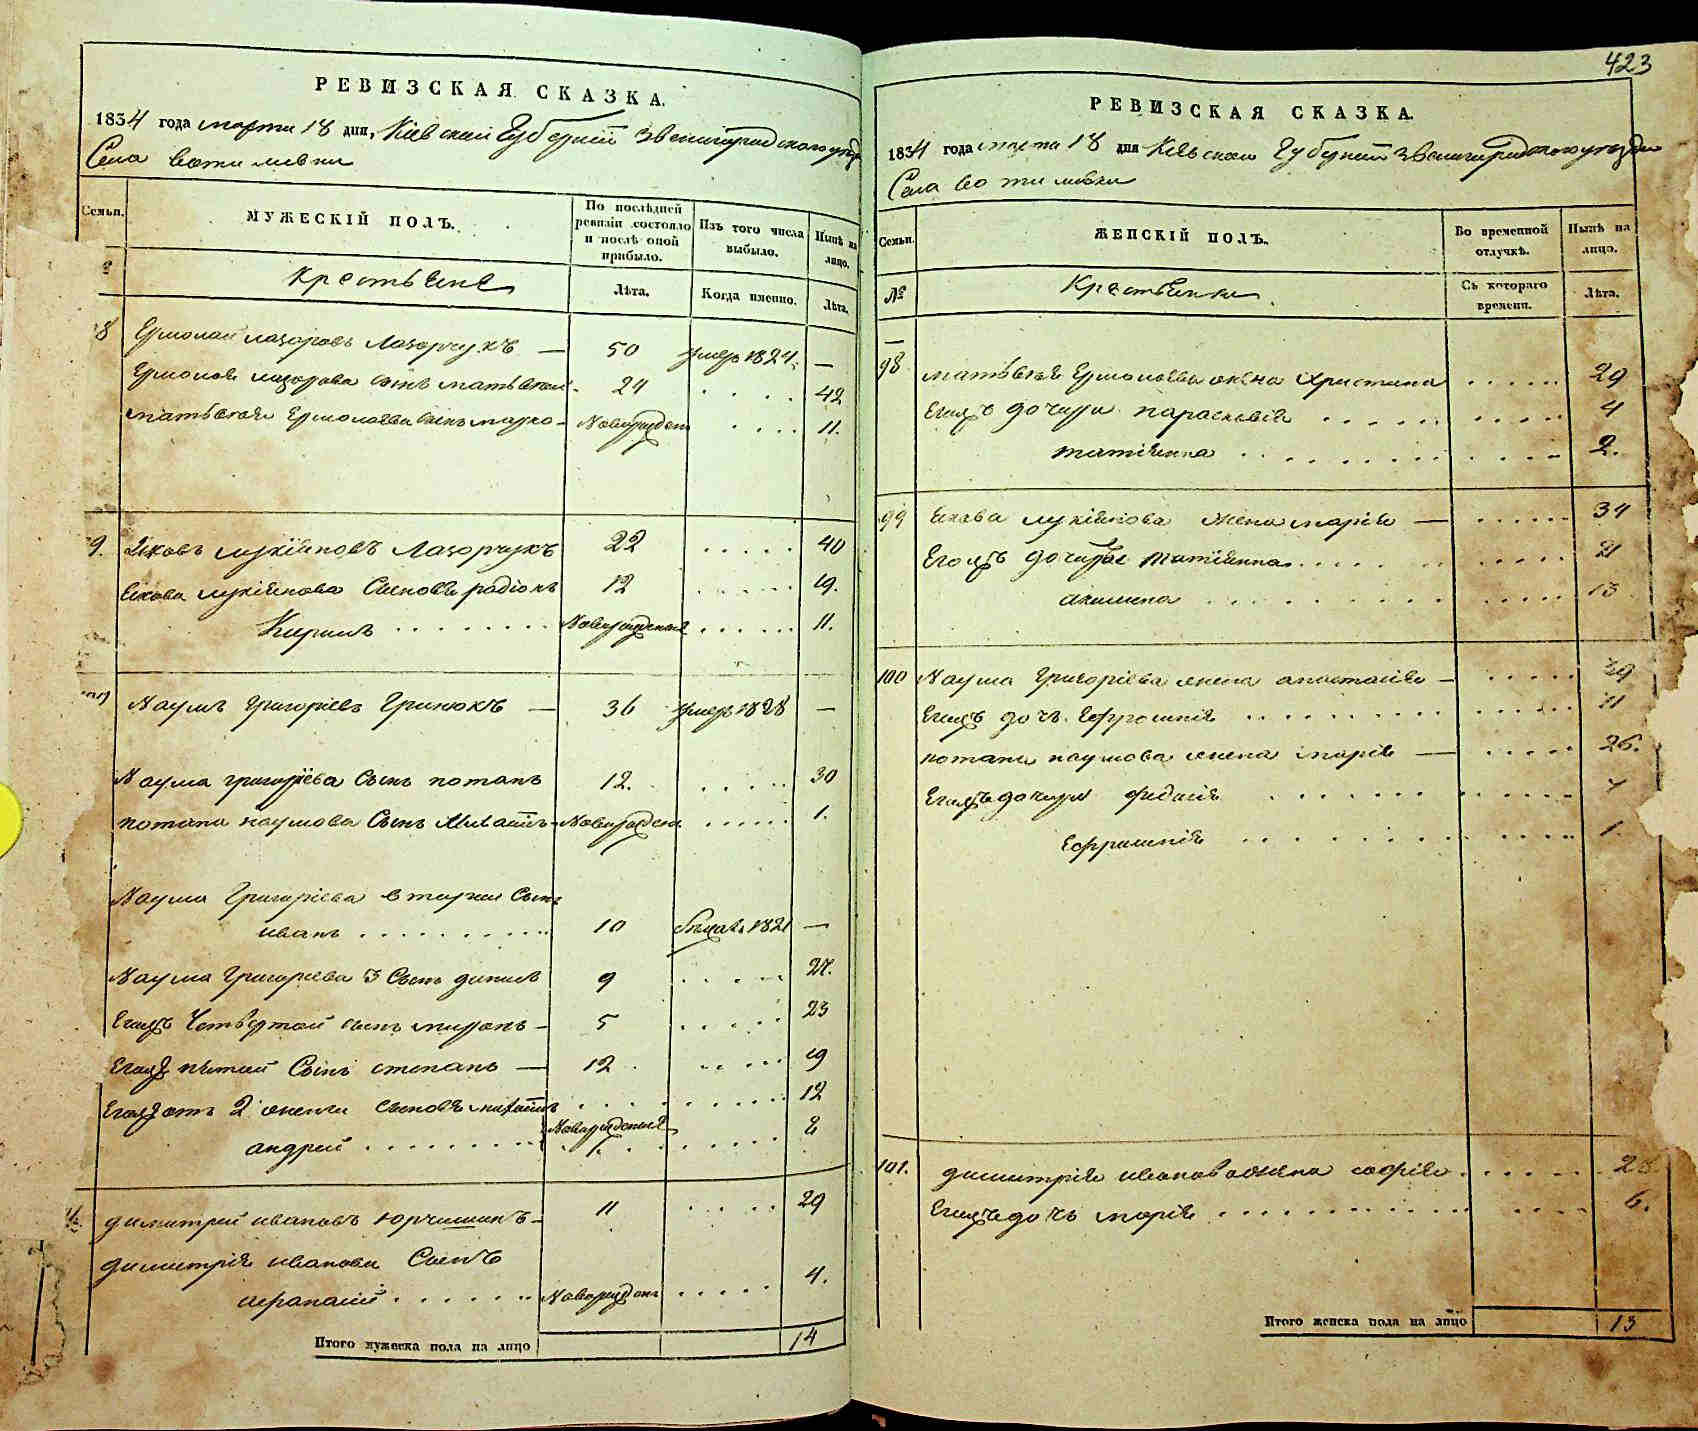 РЕВИЗСКАЯ СКАЗКА.
1834 года марта 18 дня, Кіевской Губерніи Звенигородского уезда
Села Вотилевки
Семьи.
МУЖЕСКІЙ ПОЛЪ.
По послѣдней ревизіи состояло и послѣ оной прибыло.
Изъ того числа выбыло.
Нынѣ на лицо.
Крестьяне
Лѣта.
Когда именно.
Лѣта.
8 Ермолай Лазоровъ Лазорчукъ — 50 умеръ 1824. —
Ермолая Лазорова сынъ Матьвѣй - 24 . . . . 42
Матьвѣя Ермолаева сынъ Марко - Новорожден . . . . 11.
9. Яковъ Лукіяновъ Лазорчукъ 22 . . . . . 40
Якова Лукіянова Сыновья Радіонъ 12 . . . . . . 19.
Кирилъ . . . . . . . . Новорожденый . . . . . . 11.
Наумъ Григоріевъ Гринюкъ — 36 умеръ 1828 —
Наума Григоріева Сынъ Потапъ 12. . . . . . 30
Потапа Наумова Сынъ Михаилъ - Новорожден . . . . . . 1.
Наума Григоріева вторый Сынъ
Иванъ . . . . . . . . . . 10 бѣжалъ 1821 —
Наума Григоріева 3 Сынъ Данилъ 9 . . . . . 27.
Егожъ Четвертой сынъ Миронъ - 5 . . . . . 23
Егожъ пятий Сынъ Степанъ — 12 . . . . . 19
Егожъ отъ 2 жены сыновья Михаилъ . . . . . . . . . 12
Андрей . . . . . . . . . Новорожденые . . . . . . 8
Димитрій Ивановъ Юрчишинъ - 11 . . . . . 29
Димитрія Иванова Сынъ
Афанасій . . . . . . . Новорожден . . . . . 4.
Итого мужеска пола на лицо 14
423
РЕВИЗСКАЯ СКАЗКА.
1834 года марта 18 дня Кіевской Губерніи Звенигородского уезда
Села Вотилевки
Семьи.
ЖЕНСКІЙ ПОЛЪ.
Во временной отлучкѣ.
Нынѣ на лицо.
№
Крестьянки.
Съ котораго времени.
Лѣта.
98. Матьвѣя Ермолаева жена Христина . . . . . . 29
Егожъ дочери Параскевія . . . . . . . . . . . 4
Татіянна . . . . . . . . . . . . . 2.
99 Якова Лукіянова жена Марія — . . . . . . 34
Егожъ дочери Татіянна . . . . . . . . . . . 21
Акилина . . . . . . . . . . . . . 13
100 Наума Григоріева жена Анастасія — . . . . . 39
Егожъ дочь Ефросинія . . . . . . . . . . . . . . 11
Потапа Наумова жена Марія — . . . . . 26.
Егожъ дочери Федосія . . . . . . . . . . . . .
Ефросинія . . . . . . . . . . . . 1.
101. Димитрія Иванова жена Софія . . . . . . 28.
Егожъ дочь Марія . . . . . . . . . . . . . . . 6.
Итого женска пола на лицо 13